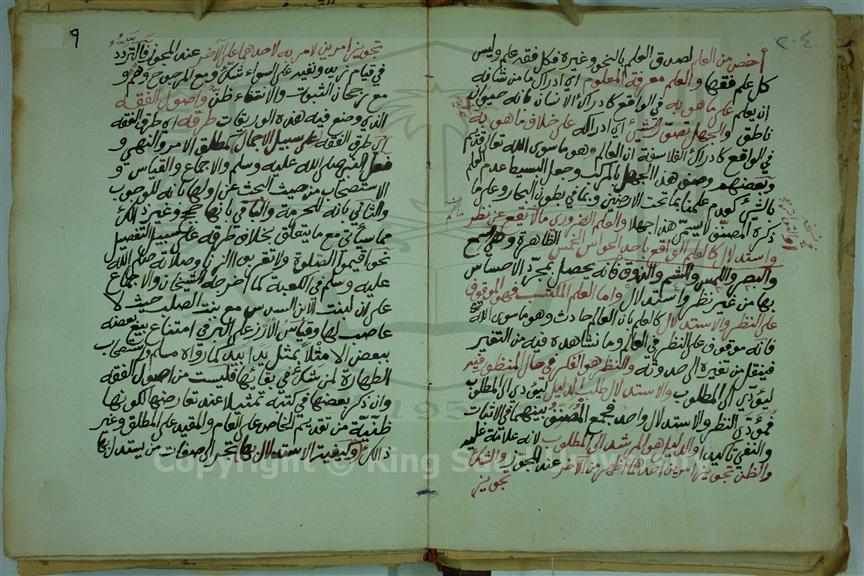 ٢٠٤
أخص من العلم لصدق العلم بالنحو وغيره فكل فقه علم وليس
كل علم فقها والعلم معرفة المعلوم اي ادراك ما من شانه
ان يعلم على ما هو به في الواقع كادراك الانسان بانه حيوان
ناطق والجهل تصور الشيئ اي ادراكه على خلاف ما هو به
في الواقع كادراك الفلاسفة ان العالم وهو ما سوى الله تعالى قديم
وبعضهم وصف هذا الجهل بالمركب وجعل البسيط عدم العلم
بالشيئ كعدم علمنا بما تحت الارضين وبما في بطون البحار وعلى ما
ذكره المصنف لا يسمى هذا جهلا والعلم الضروري ما لا يقع عن نظر
واستدلال كالعلم الواقع باحد الحواس الخمس الظاهرة وهي السمع
والبصر واللمس والشم والذوق فانه يحصل بمجرد الاحساس
بها من غير نظر واستدلال واما العلم المكتسب فهو الموقوف
على النظر والاستدلال كالعلم بان العالم حادث وهو ما سوى الله
فانه موقوف على النظر في العالم وما نشاهده فيه من التغير
فينتقل من تغيره الى حدوثه والنظر هو الفكر في حال المنظور فيه
ليؤدي الى المطلوب والاستدلال طلب الدليل ليؤدي الى المطلوب
فمؤدى النظر والاستدلال واحد فجمع المصنف بينهما في الاثبات
والنفي تاكيدا والدليل هو المرشد الى المطلوب لانه علامة عليه
والظن تجويز امرين احدهما اظهر من الآخر عند المجوز والشك
تجويز
٩
تجويز امرين لا مزية لاحدهما على الآخر عند المجوز فالتردد
في قيام زيد ونفيه على السواء شك ومع المرجوح وهم و
مع رجحان الثبوت والانتفاء ظن واصول الفقه
الذي وضع فيه هذه الورقات طرقه اي طرق الفقه
على سبيل الاجمال كمطلق الامر والنهي و
فعل النبي صلى الله عليه وسلم والاجماع والقياس و
الاستصحاب من حيث البحث عن اولها بانه للوجوب
والثاني بانه للحرمة والباقي بانها حجج وغير ذلك
مما سياتي مع ما يتعلق بخلاف طرقه على سبيل التفصيل
نحو اقيموا الصلوة ولا تقربوا الزنا وصلاته صلى الله
عليه وسلم في الكعبة كما اخرجه الشيخان والاجماع
على ان لبنت الابن السدس مع بنت الصلب حيث لا
عاصب لها وقياس الارز على البر في امتناع بيع بعضه
ببعض الا مثلا بمثل يدا بيد كما رواه مسلم واستصحاب
الطهارة لمن شك في بقائها فليست من اصول الفقه
وان ذكر بعضها في كتبه تمثيلا عند تعارضها لكونها
ظنية من تقديم الخاص على العام والمقيد على المطلق وغير
ذلك وكيفية الاستدلال بها تجر الى صفات من يستدل بها
Copyright © King Saud University
195